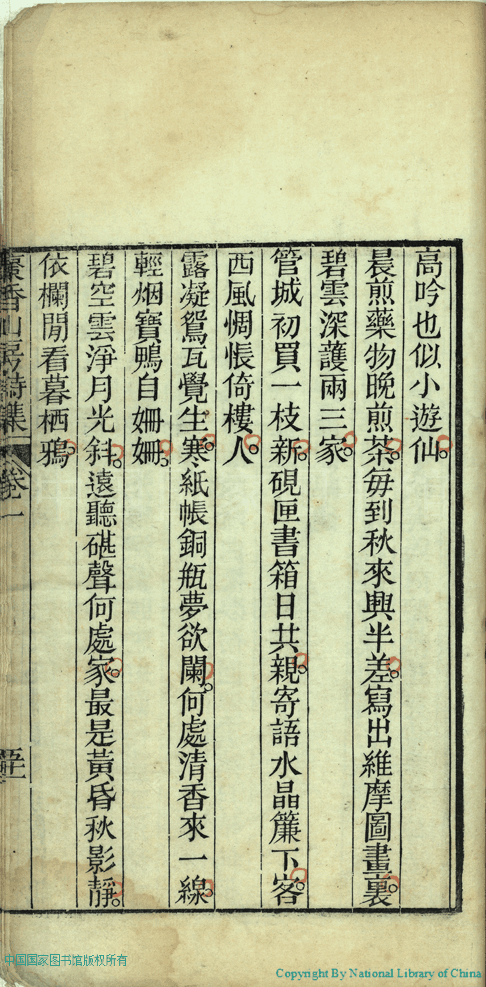 高吟也似小遊仙
晨煎藥物晚煎茶每到秋來興半差寫出維摩圖畫裏
碧雲深護兩三家
管城初買一枝新硯匣書箱日共親寄語水晶簾下客
西風惆悵倚樓人
露凝鴛瓦覺生寒紙帳銅瓶夢欲闌何處清香來一線
輕烟寶鴨自姍姍
碧空雲淨月光斜遠聽碪聲何處家最是黃昏秋影靜
依欄閒看暮栖鴉
香山房詩集 卷一
中国国家图书馆版权所有
Copyright By National Library of China